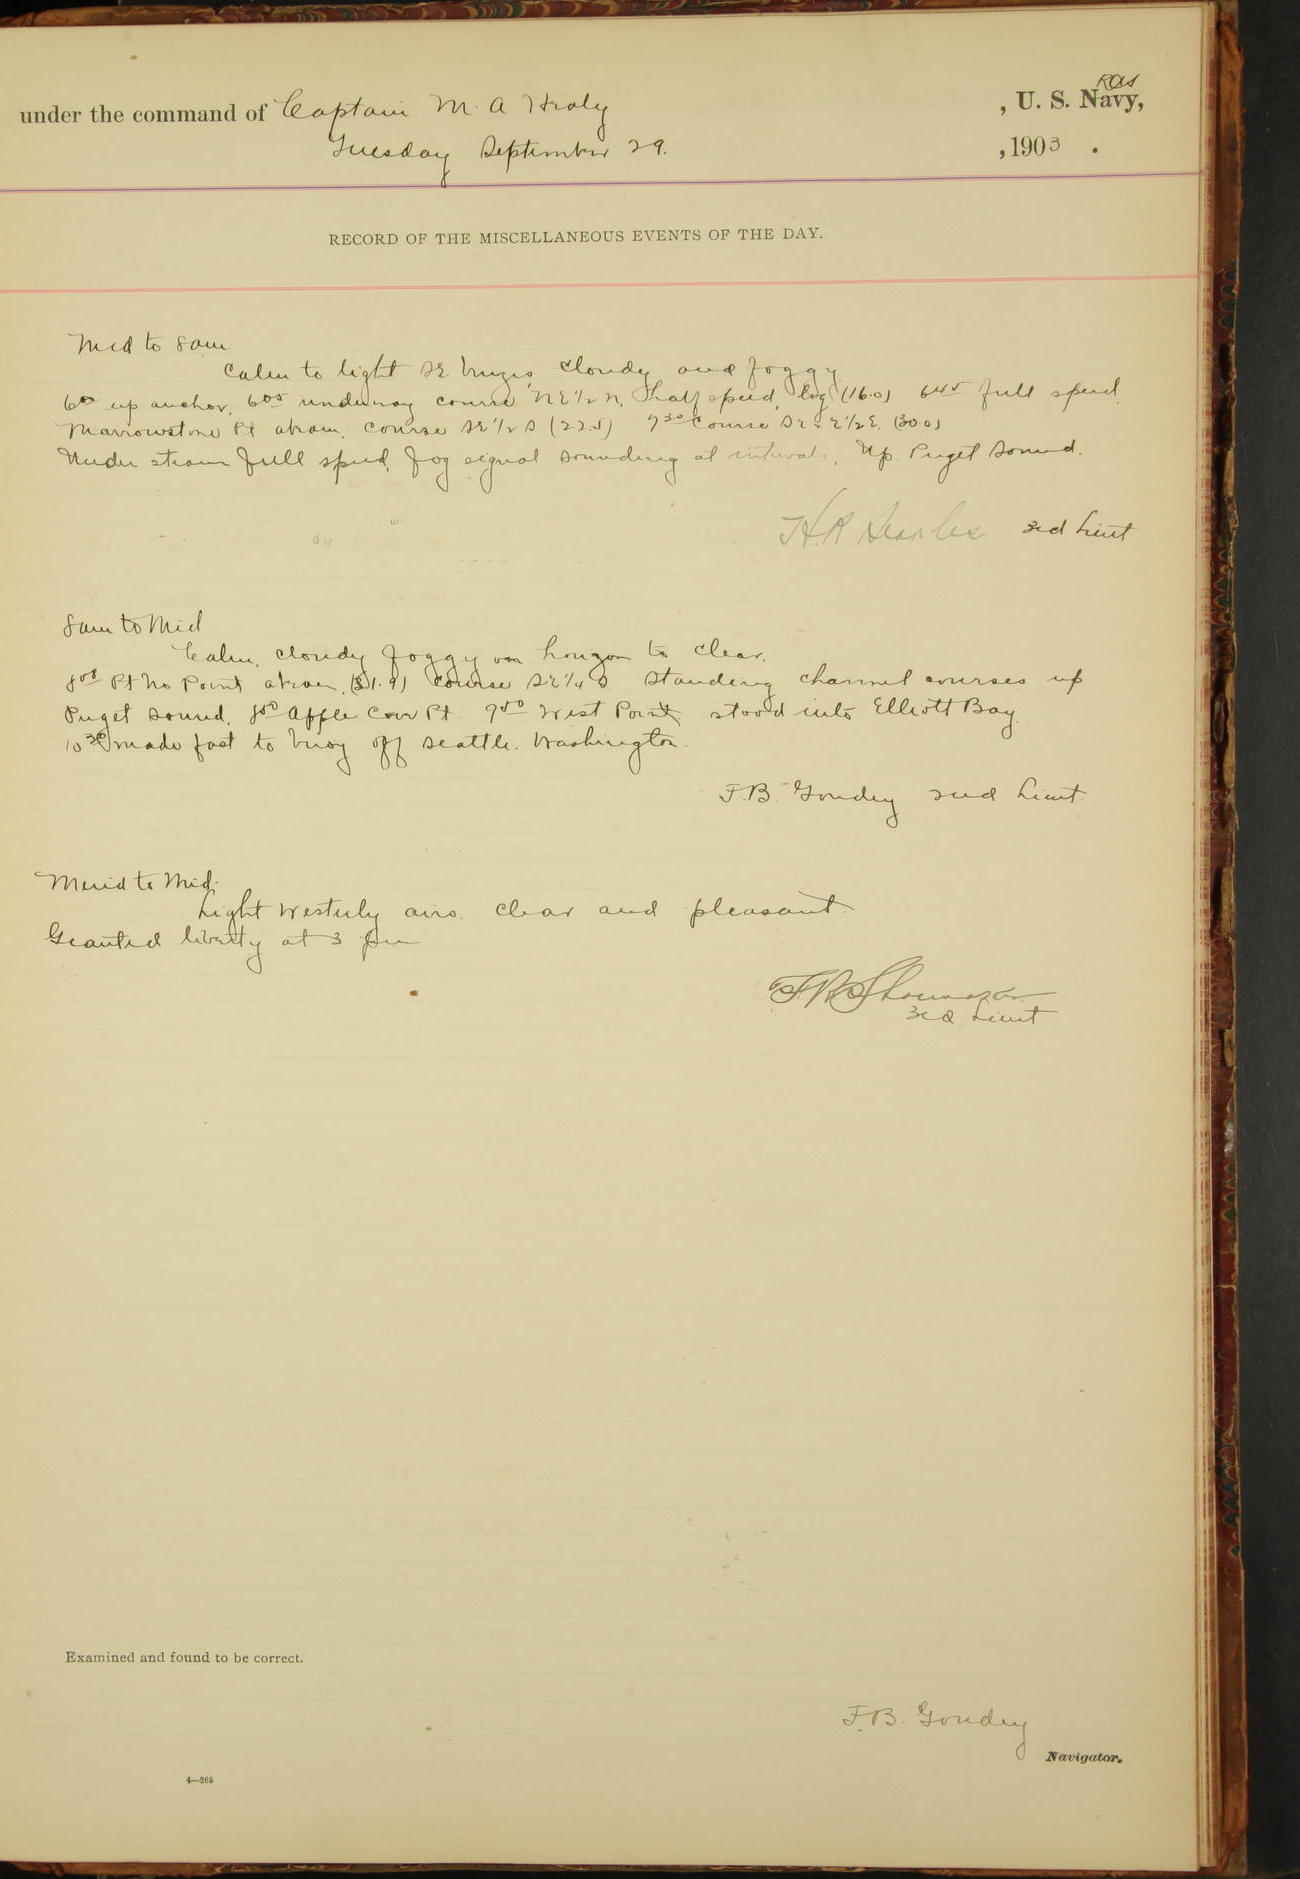 RCS
under the command of Captain M. A Healy , U. S. Navy,
Tuesday September 29. , 1903 .
RECORD OF THE MISCELLANEOUS EVENTS OF THE DAY.
Mid to 8am
Calm to light SE breezes, cloudy and foggy
6⁰⁰ up anchor, 6⁰⁵ underway course NE 1/2 N, half speed, log (16.0) 6⁴⁵ full speed
Marrowstone Pt abeam, course SE 1/2 S (22.5) 7³⁰ Course SE x E 1/2 E. (30.0)
Under steam full speed, fog signal sounding at intervals, Up Puget Sound.
3rd Lieut
8am to Mid
Calm, cloudy foggy on horizon to clear.
8⁰⁰ Pt No Point abeam, (31.9) course SE 1/4 S Standing channel courses up
Puget Sound. Apple Cove Pt. 9⁵⁰ West Point stood into Elliott Bay
10³⁰ made fast to buoy off Seattle. Washington.
F.B. Goudey 2nd Lieut
Merid to Mid.
Light Westerly airs. clear and pleasant.
Granted liberty at 3 pm
3rd Lieut
Examined and found to be correct.
F.B. Goudey
Navigator.
4—265